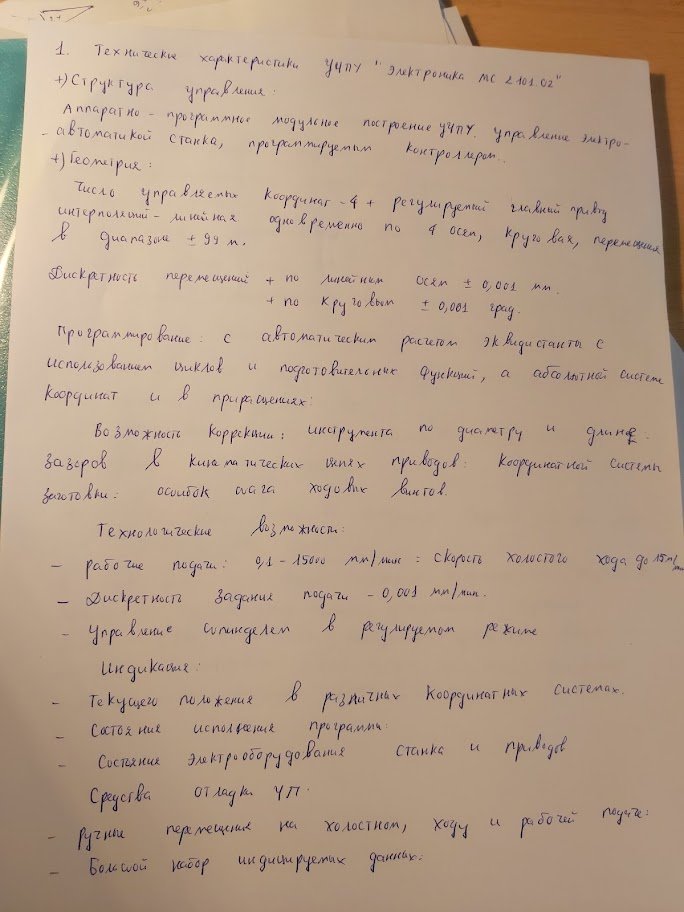 1. Технические характеристики УЧПУ "Электроника МС 2101.02"
+) Структура управления:
Аппаратно - программное модульное построение УЧПУ. управление электро-
- автоматикой станка, программируемым контроллером.
+) Геометрия:
Число управляемых координат - 4 + регулируемый главный привод
интерполяций - линейная одновременно по 4 осям, круговая, перемещения
в диапазоне ± 99 м.
Дискретность перемещений + по линейным осям ± 0,001 мм.
+ по круговым ± 0,001 град.
Программирование: с автоматическим расчетом эквидистанты с
использованием циклов и подготовительных функций, а абсолютной системе
координат и в приращениях:
Возможность коррекции: инструмента по диаметру и длине.
зазоров в кинематических цепях приводов: координатной системы
заготовки: ошибок шага ходовых винтов.
Технологические возможности:
- рабочие подачи: 0,1 - 15000 мм/мин: скорость холостого хода до 15 м/мин
- Дискретность задания подачи - 0,001 мм/мин.
- Управление шпинделем в регулируемом режиме
Индикация:
- Текущего положения в различных координатных системах.
- Состояния исполнения программы:
- Состояние электрооборудования станка и приводов
Средства отладки УП.
- ручные перемещения на холостном, ходу и рабочей подаче:
- Большой набор индицируемых данных: